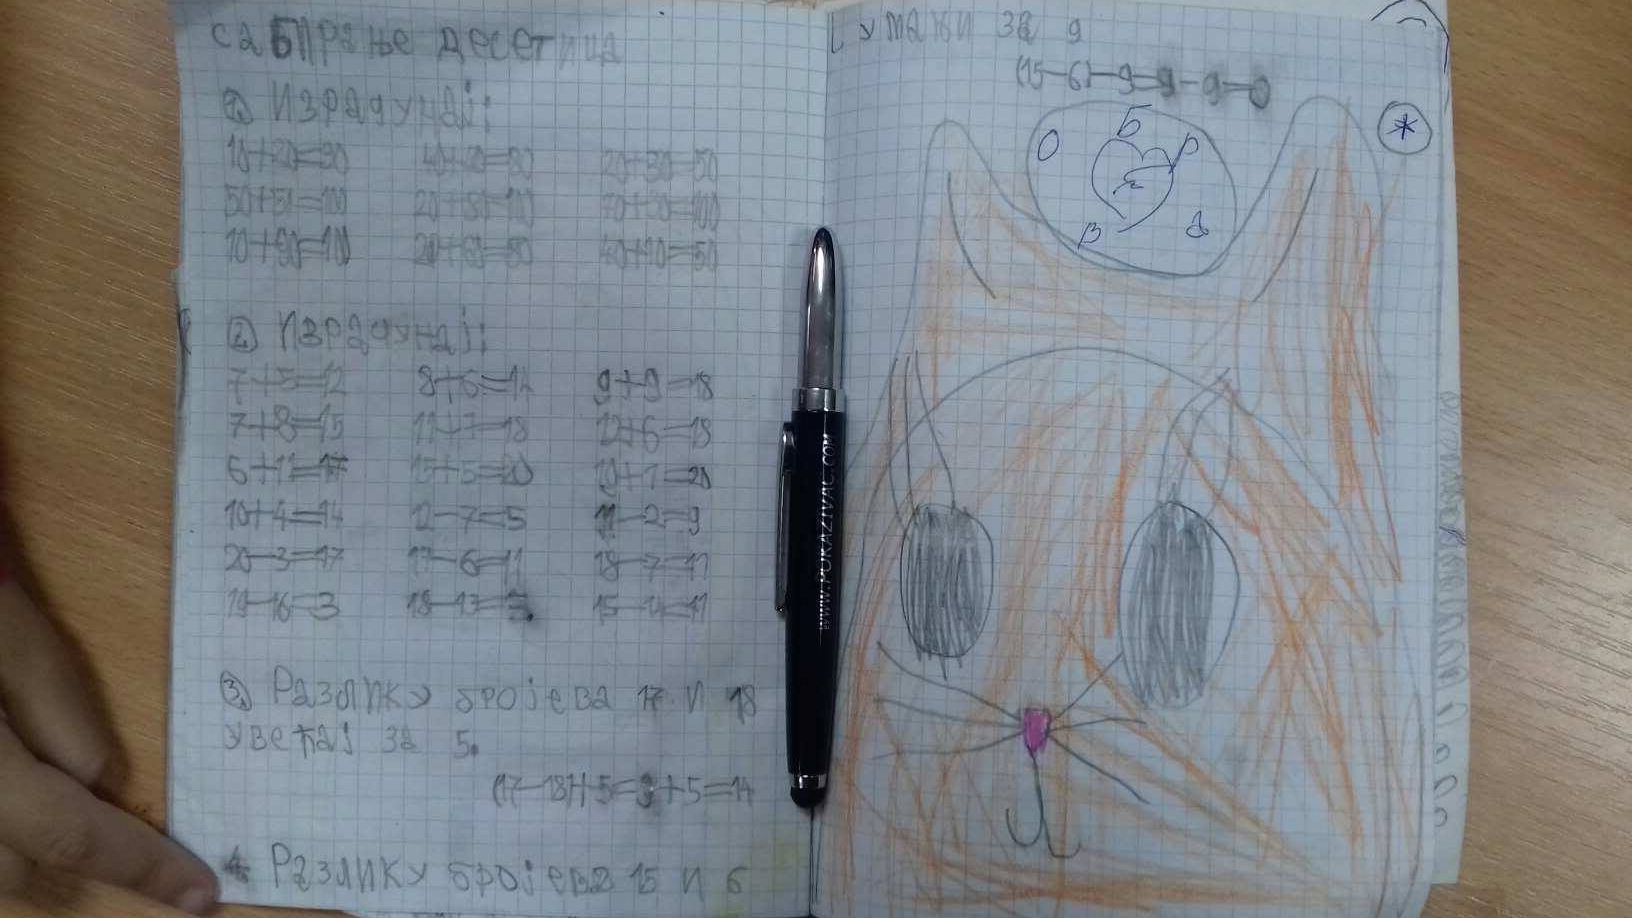 сабирање десетица
1. Израчунај:
10+20=30 40+40=80 20+30=50
50+50=100 20+80=100 70+30=100
10+90=100 20+60=80 40+10=50
2. Израчунај:
7+5=12 8+6=14 9+9=18
7+8=15 11+7=18 12+6=18
6+11=17 15+5=20
10+4=14 12-7=5 11-2=9
20-3=17 17-6=11 18-7=11
19-16=3 15-4=11
3. Разлику бројева 17 и 18
увећај за 5.
(17-18)+5=9+5=14
4. Разлику бројева 15 и 6
умањи за 9
(15-6)-9=9-9=0
WWW.POKAZIVAC.COM